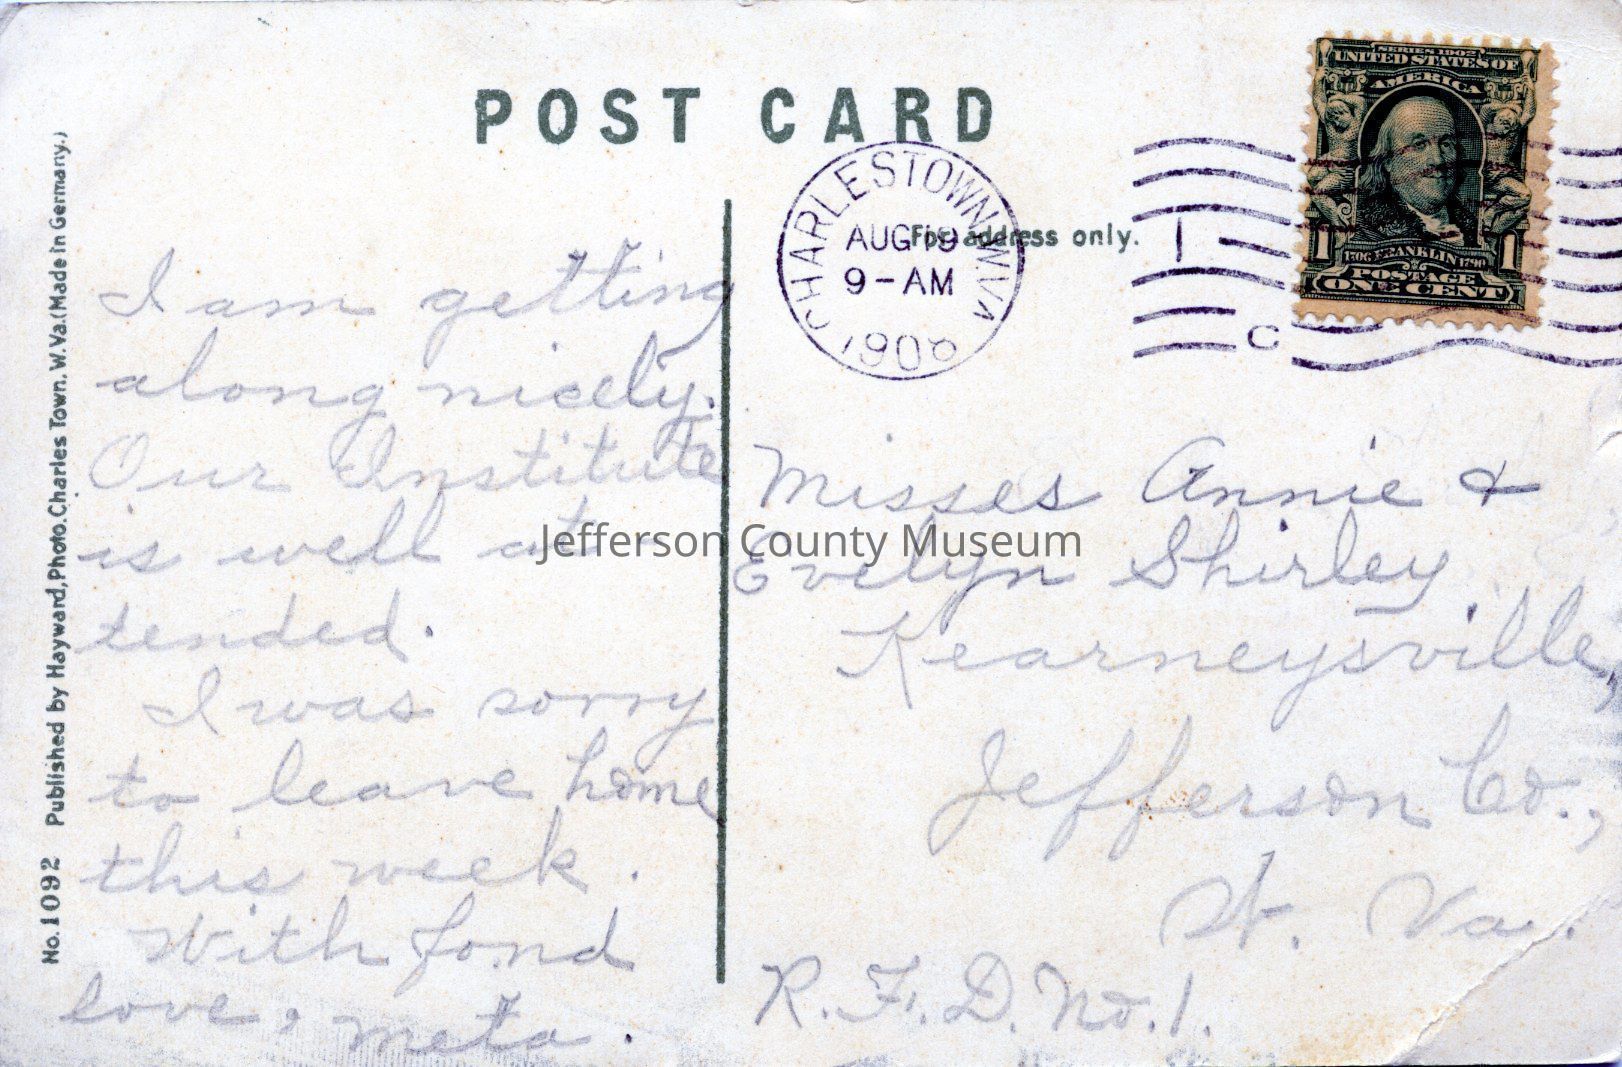 POST CARD
For address only.
CHARLESTOWN, W.VA
AUG 19
9-AM
1908
1
C
SERIES 1902
UNITED STATES OF
AMERICA
1 1706 FRANKLIN 1790 1
POSTAGE
ONE CENT
No. 1092 Published by Hayward, Photo. Charles Town. W. Va. (Made in Germany.)
I am getting
along nicely.
Our Institute
is well at-
tended.
I was sorry
to leave home
this week.
With fond
love, Meta.
Misses Annie &
Evelyn Shirley
Kearneysville,
Jefferson Co.,
W. Va.
R.F.D. No. 1.
Jefferson County Museum